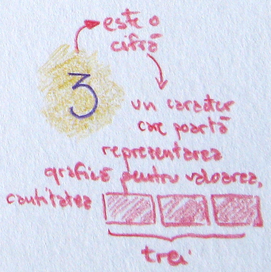 este o
cifră
3
un caracter
care poartă
reprezentarea
grafică pentru valoarea,
cantitatea
trei